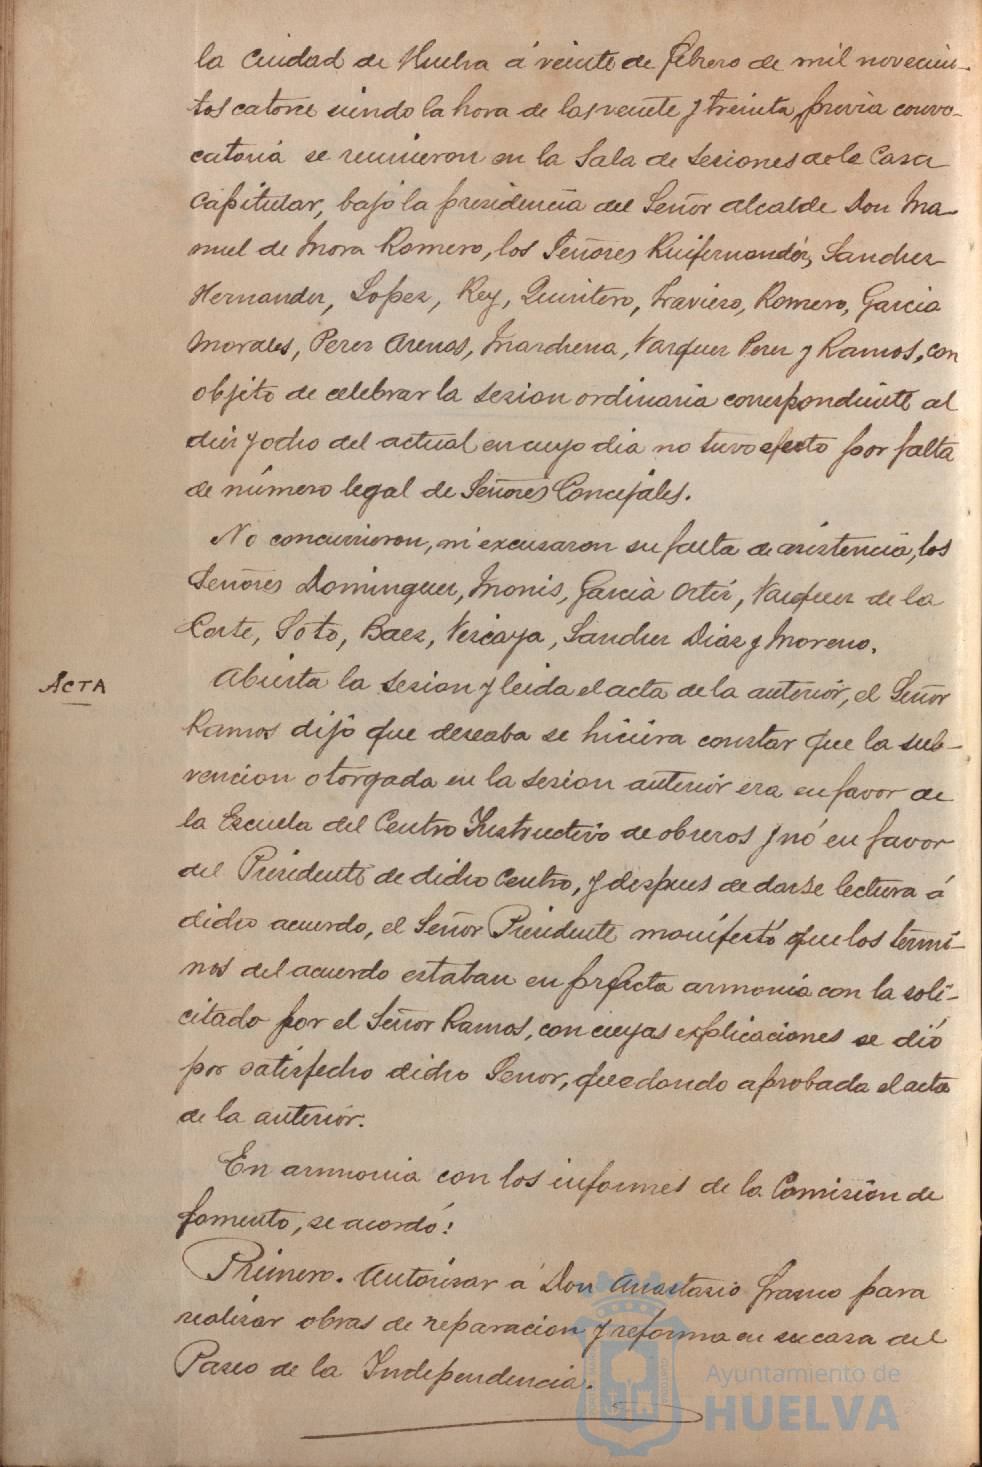 la Ciudad de Huelva á veinte de febrero de mil novecien-
tos catorce siendo la hora de las veinte y treinta, previa convo-
catoria se reunieron en la Sala de Sesiones de la Casa
Capitular, bajo la presidencia del Señor Alcalde Don Ma-
nuel de Mora Romero, los Señores Ruifernandez, Sanchez
Hernandez, Lopez, Rey, Quintero, Travieso, Romero, Garcia
Morales, Perez Arenas, Marchena, Vazquez Perez y Ramos, con
objeto de celebrar la sesion ordinaria correspondiente al
diez y ocho del actual en cuyo dia no tuvo efecto por falta
de número legal de Señores Concejales.
No concurrieron, ni excusaron su falta de asistencia, los
Señores Dominguez, Monis, Garcia Ortiz, Vazquez de la
Corte, Soto, Baez, Vizcaya, Sanchez Diaz y Moreno.
ACTA
Abierta la sesion y leida el acta de la anterior, el Señor
Ramos dijo que deseaba se hiciera constar que la sub-
vencion otorgada en la sesion anterior era en favor de
la Escuela del Centro Instructivo de obreros y nó en favor
del Presidente de dicho Centro, y despues de darse lectura á
dicho acuerdo, el Señor Presidente manifestó que los térmi-
nos del acuerdo estaban en prfecta armonia con la soli-
citado por el Señor Ramos, con cuyas explicaciones se dió
por satisfecho dicho Senor, quedando aprobada el acta
de la anterior.
En armonia con los informes de la Comision de
fomento, se acordó:
Primero. Autorizar á Don Anastasio Franco para
realizar obras de reparacion y reforma en su casa del
Paseo de la Independencia.
Ayuntamiento de
HUELVA